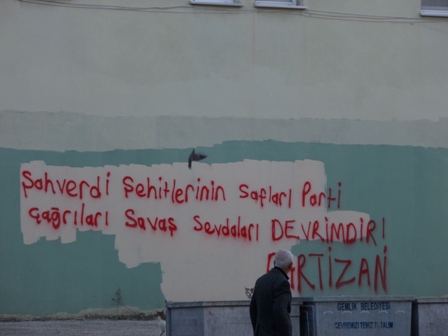 Şahverdi Şehitlerinin Safları Parti
Çağrıları Savaş Sevdaları DEVRİMDİR!
PARTİZAN
GEMLİK BELEDİYESİ
ÇEVREMİZİ TEMİZ TUTALIM